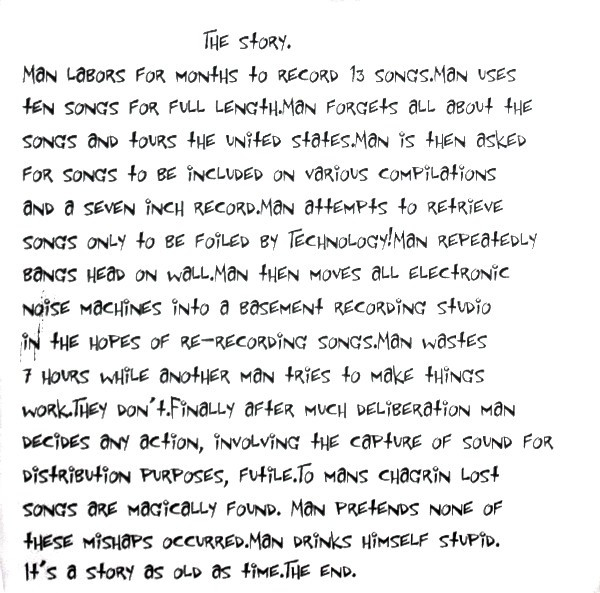 The story.
Man labors for months to record 13 songs.Man uses
ten songs for full length.Man forgets all about the
songs and tours the United States.Man is then asked
for songs to be included on various compilations
and a seven inch record.Man attempts to retrieve
songs only to be foiled by Technology!Man repeatedly
bangs head on wall.Man then moves all electronic
noise machines into a basement recording studio
in the hopes of re-recording songs.Man wastes
7 hours while another man tries to make things
work.They don't.Finally after much deliberation man
decides any action, involving the capture of sound for
distribution purposes, futile.To mans chagrin lost
songs are magically found. Man pretends none of
these mishaps occurred.Man drinks himself stupid.
It's a story as old as time.The end.